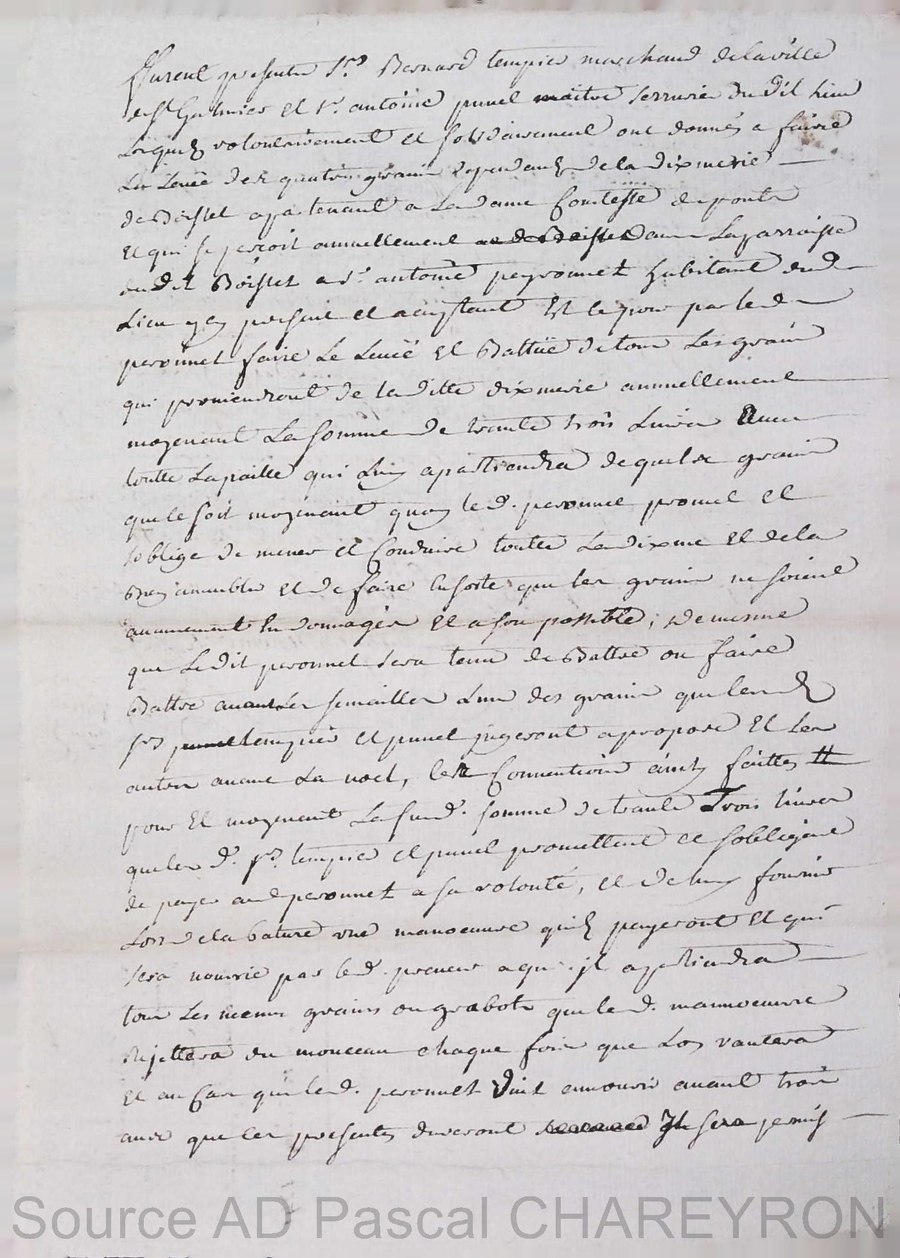 furent presents Sr. Bernard tempier marchand de la ville
de St Galmier et Sr. antoine punel maitre serrurier du dit lieu
Lesquels volontairement et solidairement ont donnés a faire
La Levée des quatres grains dependants de la dixmerie
de Boisset apartenant a La dame Comtesse de ponts
Et qui se perçoit annuellement dans La parroisse
du dt Boisset a Sr. antoine peyronnet habitant du d
Lieu y present et aceptant Et ce pour par le d
peronnet faire Le Levée Et Battüe de tous Les grains
qui proviendront de la ditte dixmerie annuellement
moyenant La somme de trante trois Livres avec
toutte La paille qui Luy apartiendra de quelse grains
que le soit moyenant quoy le d. peronnet promet et
soblige de mener et Conduire toutte La dixme et de la
Bien amonbler et de faire en sorte que les grains ne soient
aucunement En domagés Et a son possible; de meme
que Le dit peronnet sera tenu de Battre ou faire
Battre avant Les semailles L'un des grains que les d
srs tempier et punel jugeront a propos Et Les
autres avant La noel, les Conventions ainsy faittes
pour Et moyenant La sus d. somme de trante Trois Livres
que les d. srs tempier et punel promettent et sobligent
de payer aud peronnet a sa volonté, et de luy fournir
Lors de la bature une manoeuvre quils payeront Et qui
sera nourrie par le d. preneur a qui il apartiendra
tous Les menus grains ou grabots que le d. manoeuvre
Rejettera du monceau chaque fois que Lon vantera
Et au Cas que le d. peronnet Vint amourir avant trois
ans que les presentes dureront Il sera permis
Source AD Pascal CHAREYRON